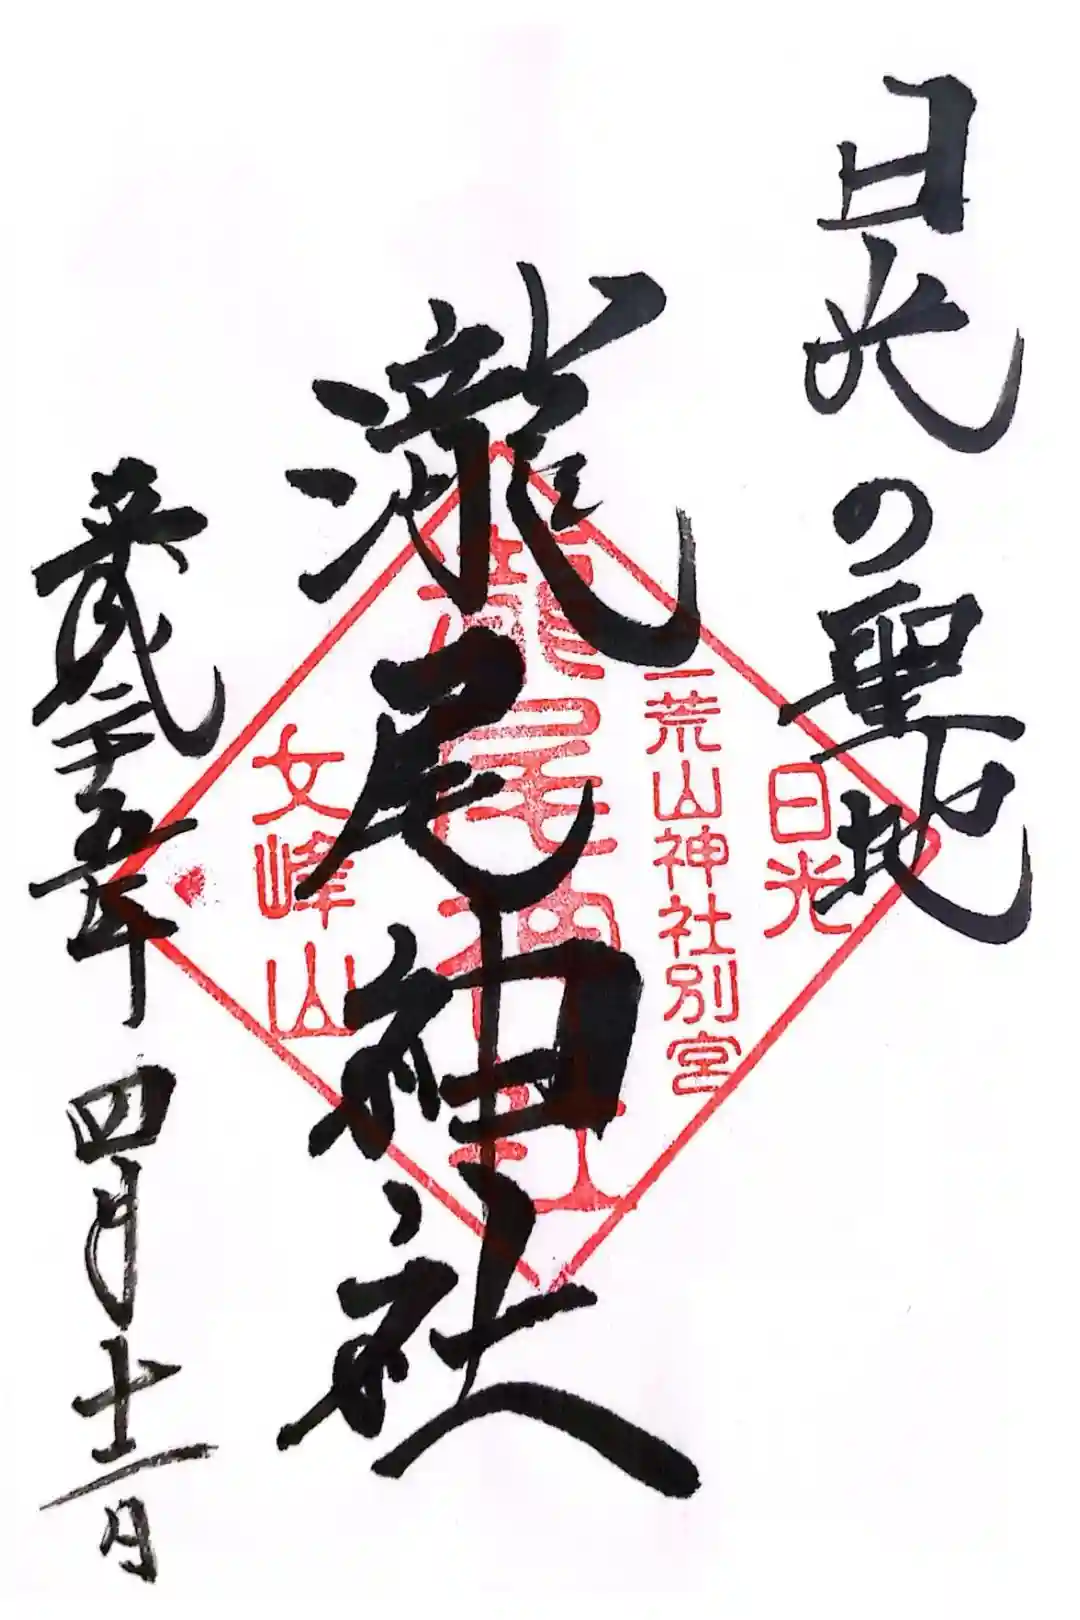 日光の聖地
日光
二荒山神社別宮
瀧尾神社
瀧尾神社
女峰山
平成二十五年四月十三日